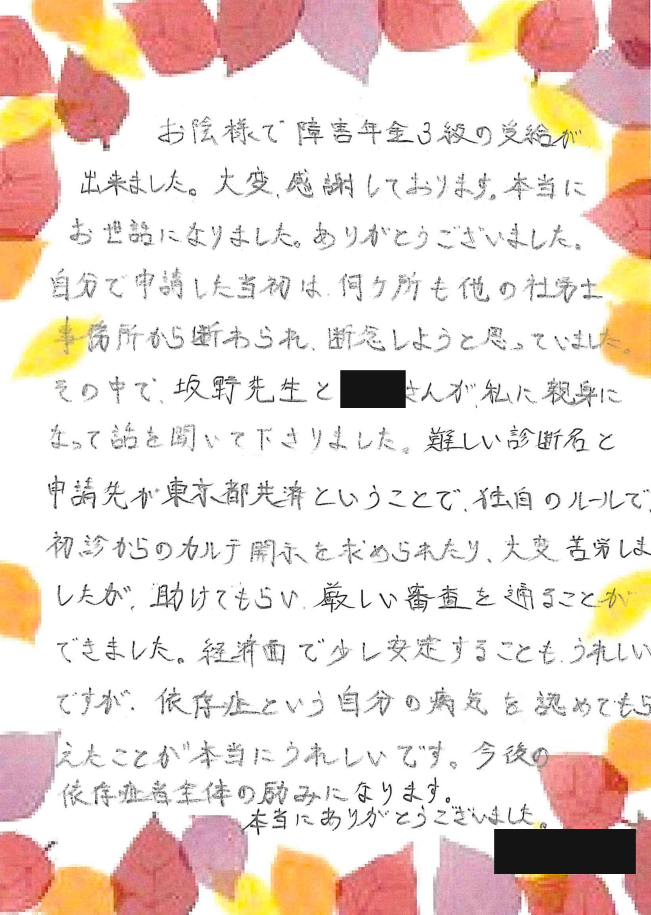 お陰様で障害年金3級の受給が
出来ました。大変、感謝しております。本当に
お世話になりました。ありがとうございました。
自分で申請した当初は、何ケ所も他の社労士
事務所から断わられ、断念しようと思っていました。
その中で、坂野先生と さんが、私に親身に
なって話を聞いて下さりました。難しい診断名と
申請先が東京都共済ということで、独自のルールで、
初診からのカルテ開示を求められたり、大変苦労しま
したが、助けてもらい、厳しい審査を通ることが
できました。経済面で少し安定することも、うれしい
ですが、依存症という自分の病気を認めてもら
えたことが本当にうれしいです。今後の
依存症者全体の励みになります。
本当にありがとうございました。